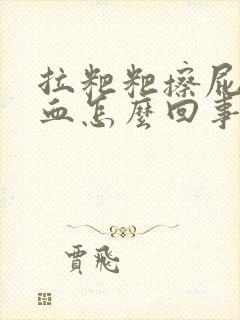 拉粑粑擦屁
血怎麼回事
賈飛